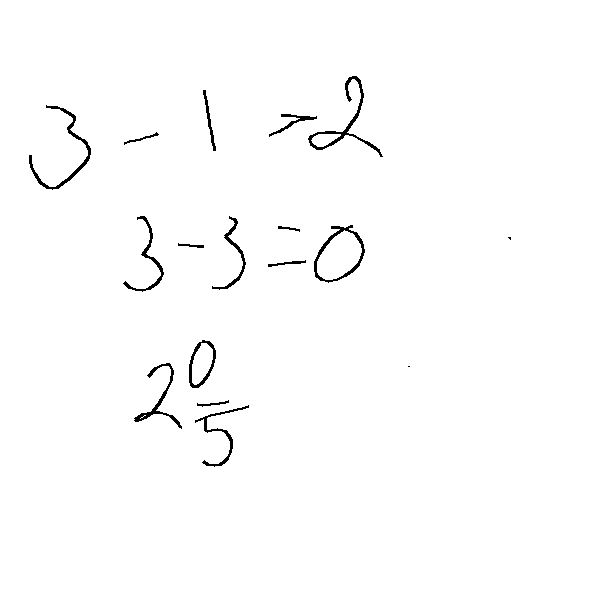 3 - 1 = 2
3 - 3 = 0
2 0/5